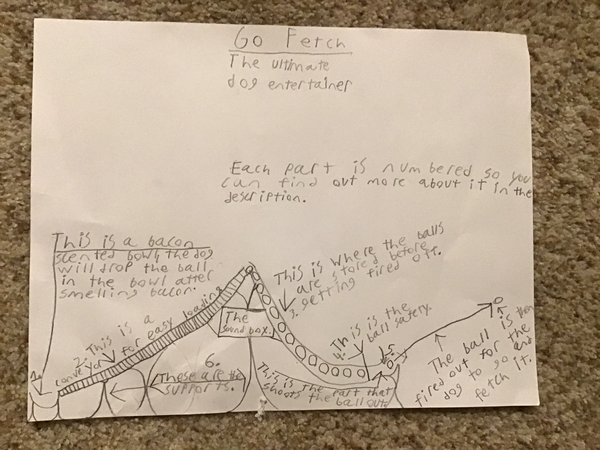 Go Fetch
The ultimate
dog entertainer
Each part is numbered so you
can find out more about it in the
description.
This is a bacon
scented bowl the dog
will drop the ball
in the bowl after
smelling bacon.
2. This is a
conveyor for easy loading
The
sound box.
This is where the balls
are stored before
3. getting fired off.
This is
the ball safety.
4.
5.
6.
These are the
supports.
This is the part that
shoots the ball out
The ball is then
fired out for the
dog to go and
fetch it.